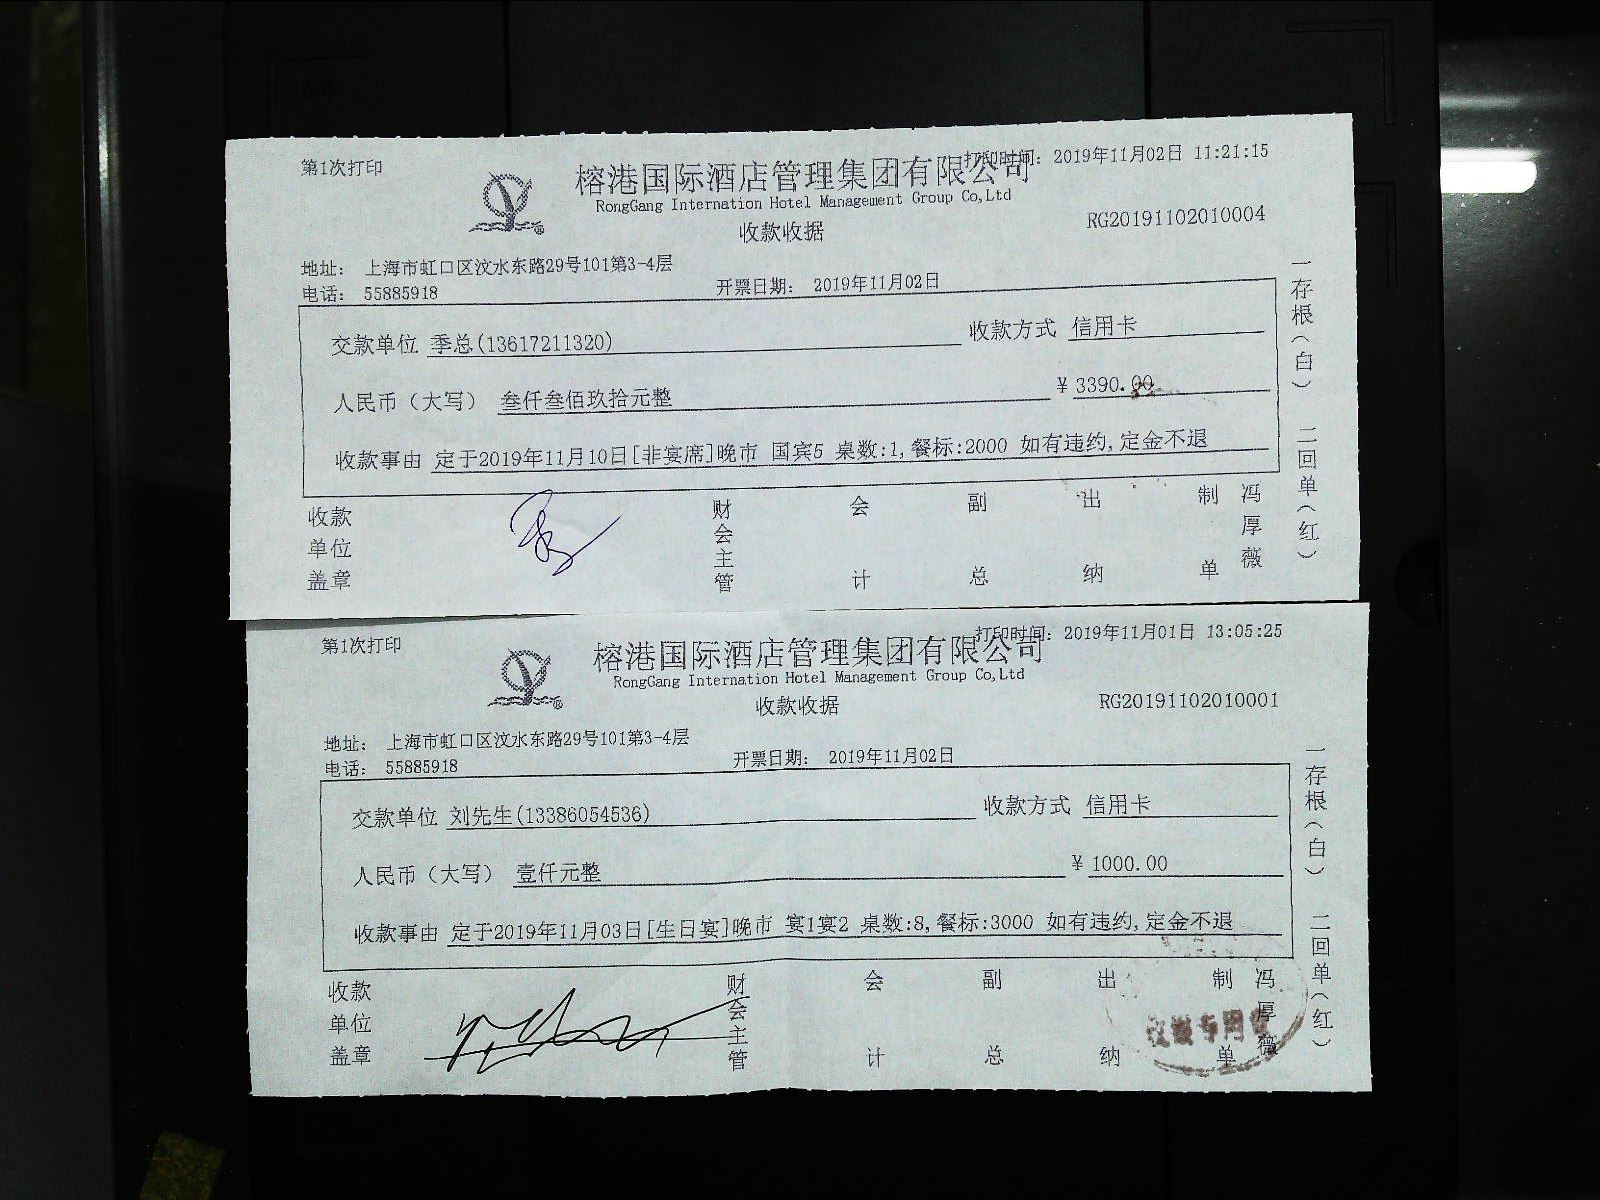 第1次打印
打印时间: 2019年11月02日 11:21:15
榕港国际酒店管理集团有限公司
RongGang Internation Hotel Management Group Co,Ltd
收款收据
RG20191102010004
地址: 上海市虹口区汶水东路29号101第3-4层
电话: 55885918
开票日期: 2019年11月02日
交款单位 季总(13617211320)
收款方式 信用卡
人民币（大写） 叁仟叁佰玖拾元整
¥ 3390.00
收款事由 定于2019年11月10日[非宴席]晚市 国宾5 桌数:1,餐标:2000 如有违约,定金不退
收款单位盖章
财会主管
会计
副总
出纳
制单 冯厚薇
一存根（白） 二回单（红）
第1次打印
打印时间: 2019年11月01日 13:05:25
榕港国际酒店管理集团有限公司
RongGang Internation Hotel Management Group Co,Ltd
收款收据
RG20191102010001
地址: 上海市虹口区汶水东路29号101第3-4层
电话: 55885918
开票日期: 2019年11月02日
交款单位 刘先生(13386054536)
收款方式 信用卡
人民币（大写） 壹仟元整
¥ 1000.00
收款事由 定于2019年11月03日[生日宴]晚市 宴1宴2 桌数:8,餐标:3000 如有违约,定金不退
收款单位盖章
财会主管
会计
副总
出纳
制单 冯厚薇
一存根（白） 二回单（红）